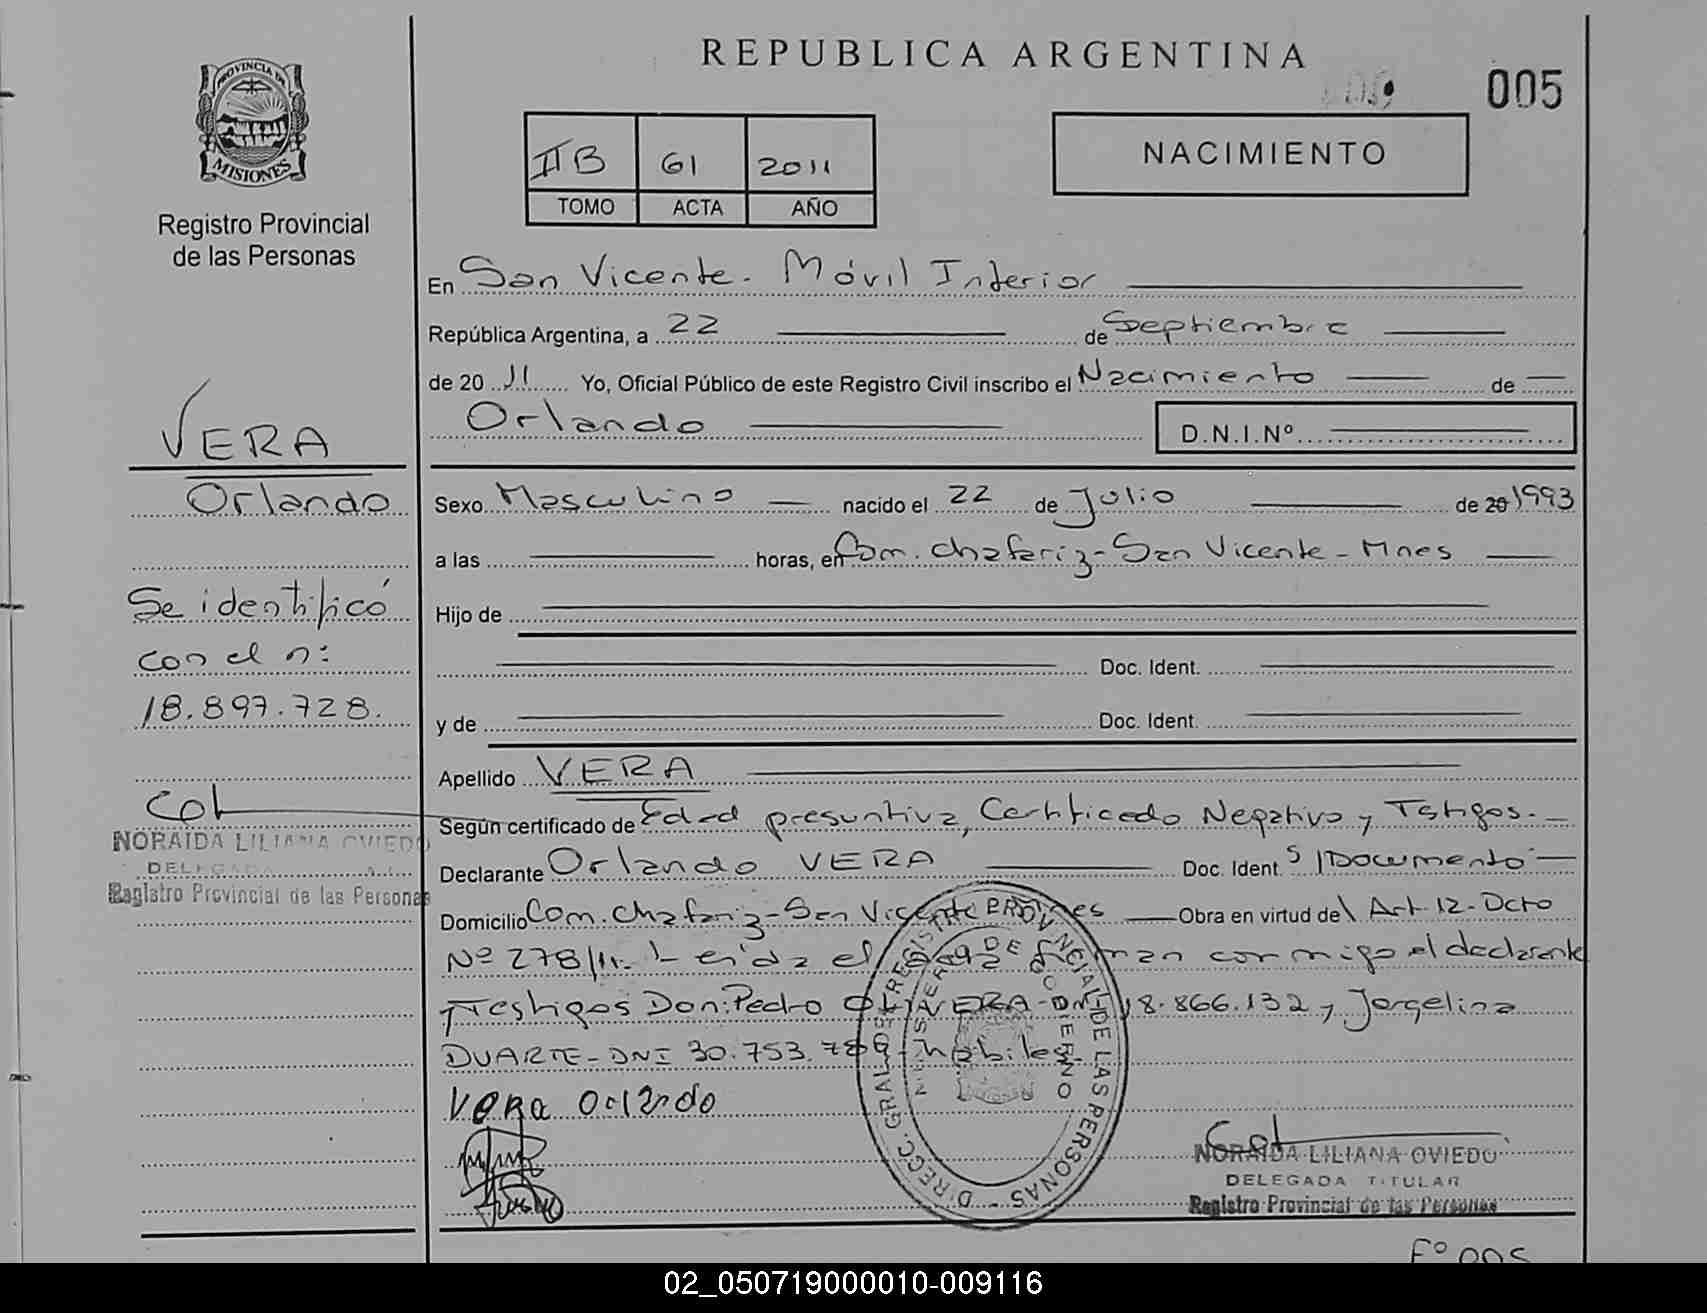 REPUBLICA ARGENTINA
005
PROVINCIA DE
MISIONES
Registro Provincial
de las Personas
IIB 61 2011
TOMO ACTA AÑO
NACIMIENTO
En San Vicente - Móvil Interior
República Argentina, a 22 de Septiembre
de 20 11 Yo, Oficial Público de este Registro Civil inscribo el Nacimiento de
Orlando D.N.I.Nº
VERA
Orlando
Se identificó
con el nº
18.897.728.
NORAIDA LILIANA OVIEDO
DELEGADA
Registro Provincial de las Personas
Sexo Masculino nacido el 22 de Julio de 20 1993
a las horas, en Com. Chafariz - San Vicente - Mnes
Hijo de
Doc. Ident.
y de Doc. Ident.
Apellido VERA
Según certificado de Edad presuntiva, Certificado Negativo y Testigos.
Declarante Orlando VERA Doc. Ident. S/Documento
Domicilio Com. Chafariz - San Vicente Mnes Obra en virtud del Art. 12 - Dcto
Nº 278/11. Leída el Acta firman conmigo el declarante
y Testigos Don: Pedro OLIVERA - DNI 18.866.132 y Jorgelina
DUARTE - DNI 30.753.789 - hábiles.
Vera Orlando
DIRECC. GRAL. DEL REGISTRO PROVINCIAL DE LAS PERSONAS
MINISTERIO DE GOBIERNO
NORAIDA LILIANA OVIEDO
DELEGADA TITULAR
Registro Provincial de las Personas
Fº 005
02_050719000010-009116